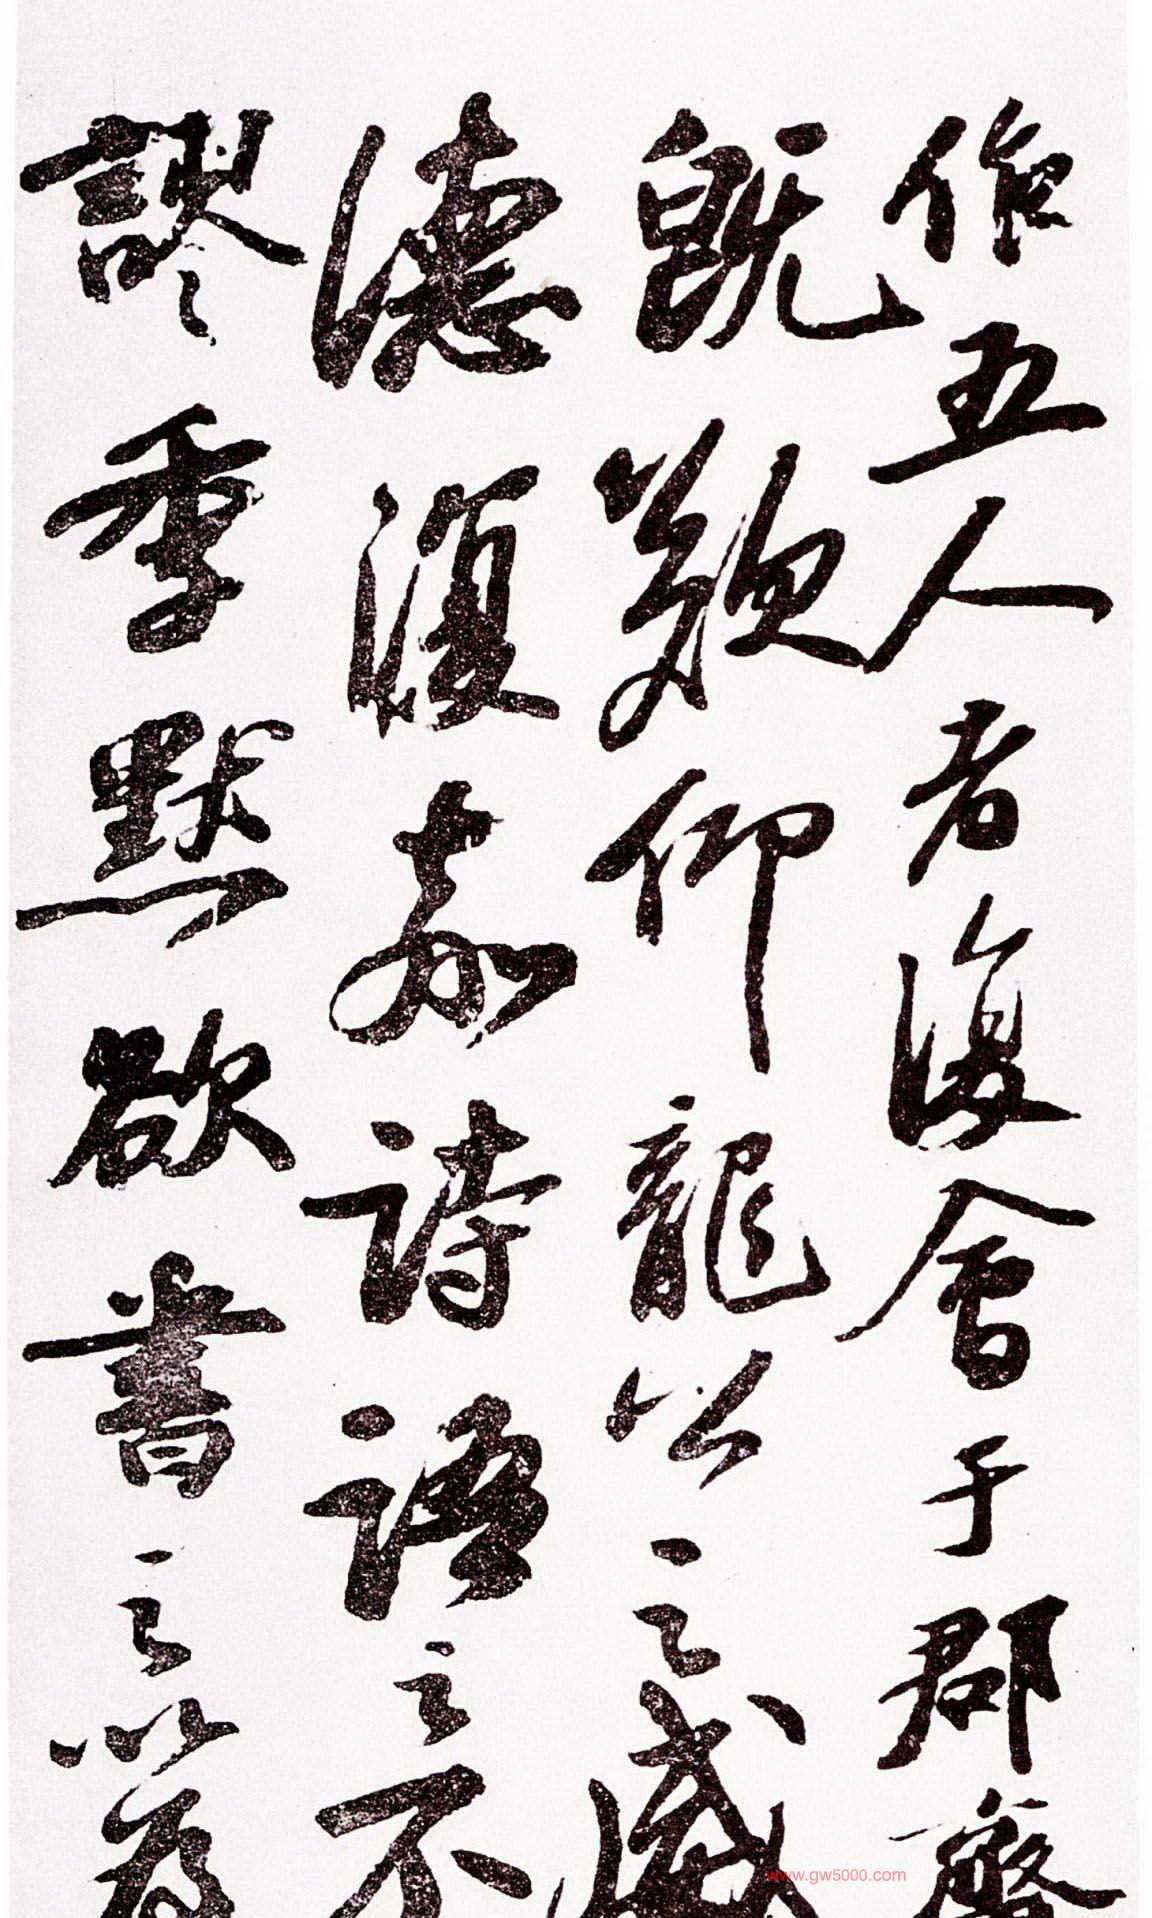 作五人者復會于郡齋
既歎仰龍公之威
德復嘉詩語之不
謬季默欲書之以爲
www.gw5000.com